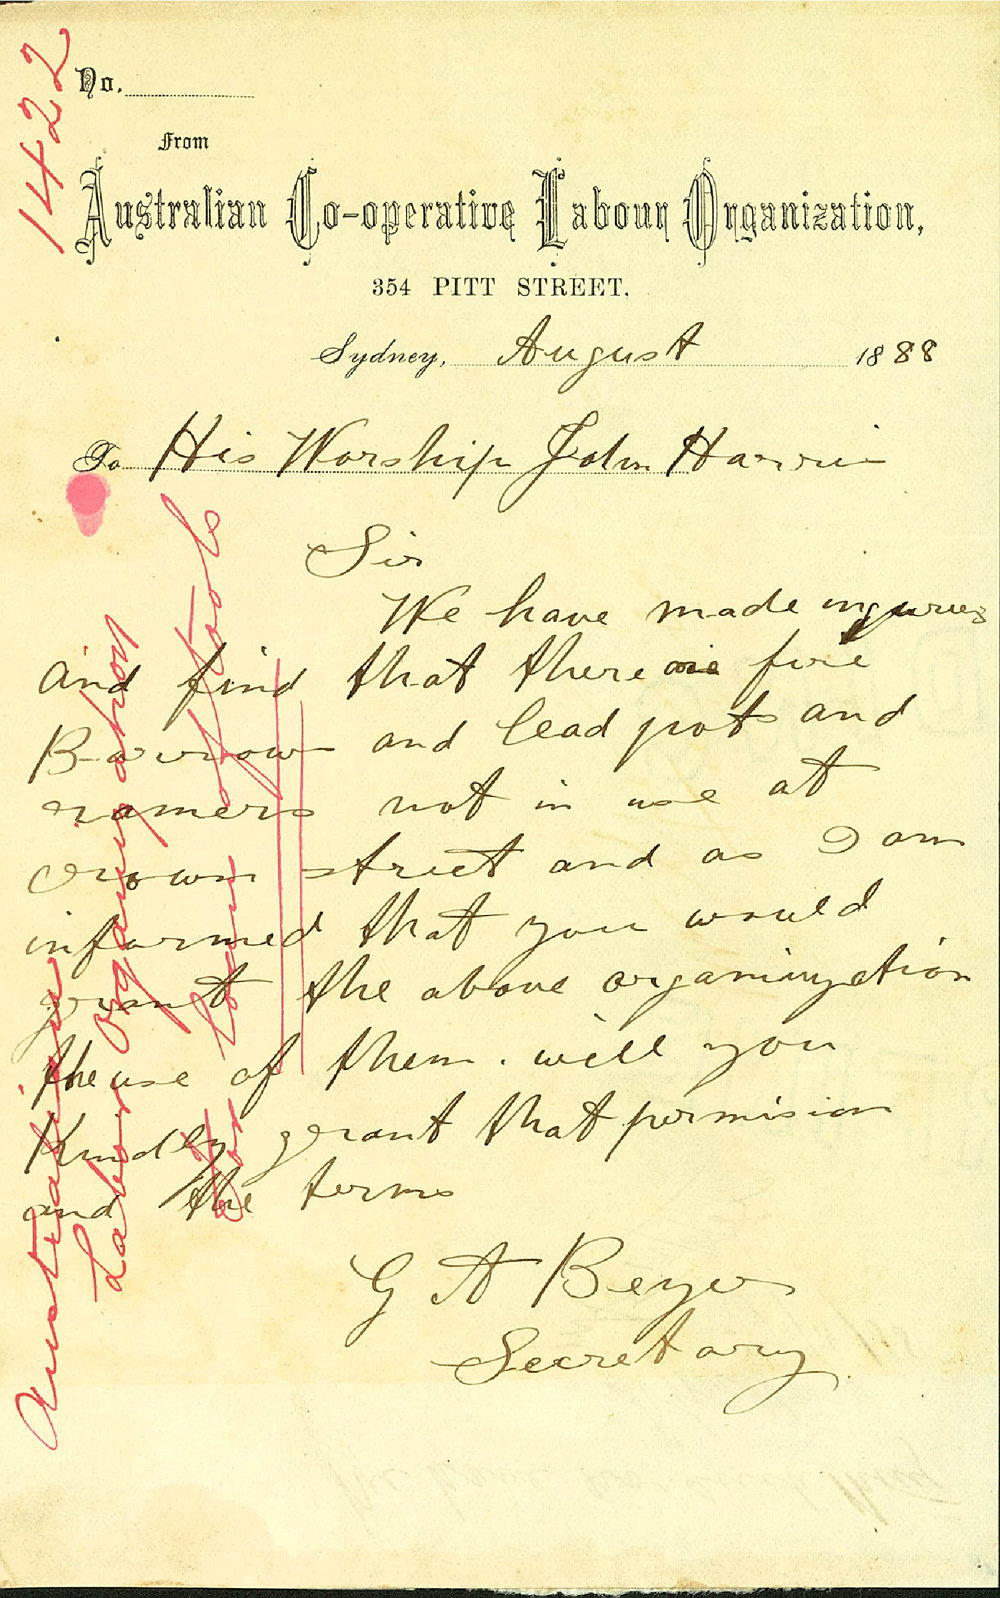 1422
No.
From
Australian Co-operative Labour Organization,
354 PITT STREET.
Sydney, August 1888
To His Worship John Harris
Sir
We have made inquries
and find that there are fire
Barrows and lead pots and
ramers not in use at
crown street and as I am
informed that you would
grant the above organinzation
the use of them. will you
Kindly grant that permision
and the terms
G A Beyer
Secretary
Australian
Labor Organization
for loan of tools